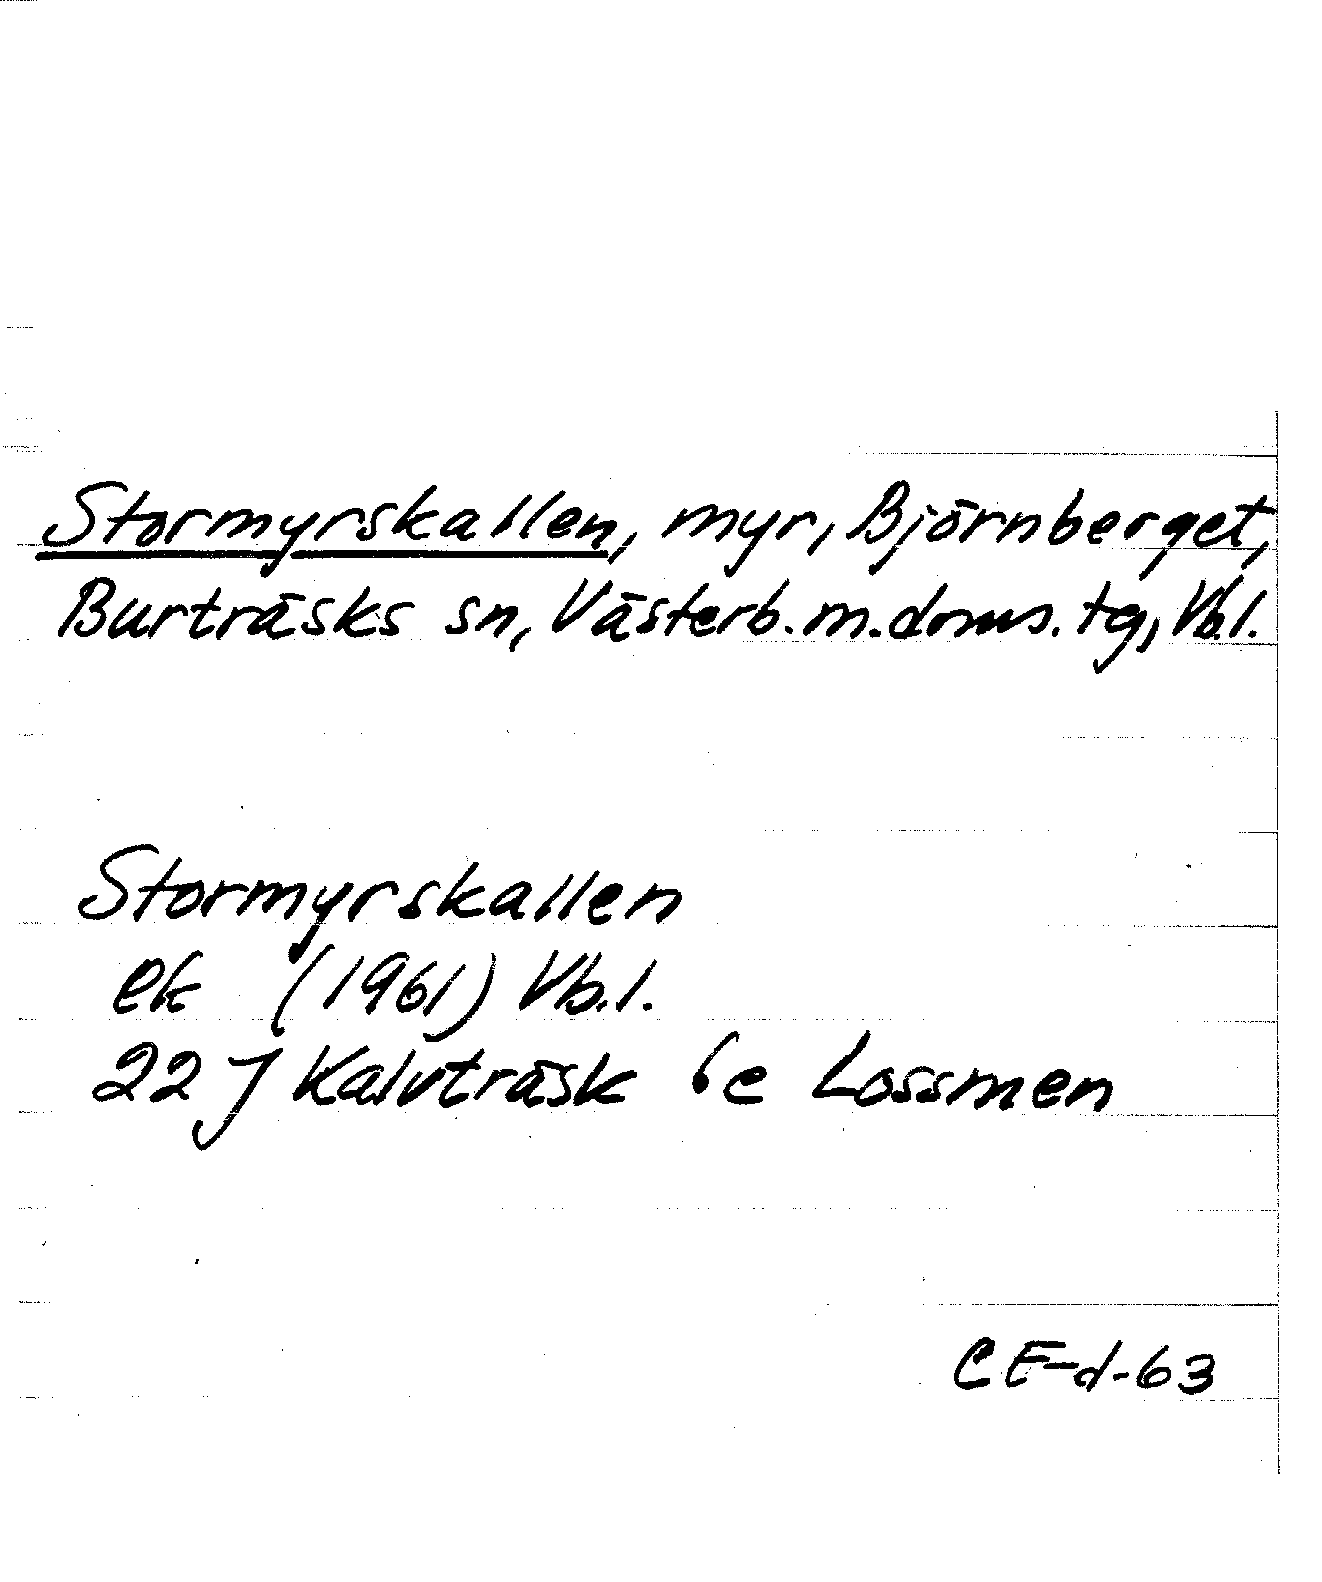 Stormyrskallen, myr, Björnberget,
Burträsks sn, Västerb.m.doms.tg, Vb.l.
Stormyrskallen
ek (1961) Vb.l.
22 J Kalvträsk 6e Lossmen
CE-d-63